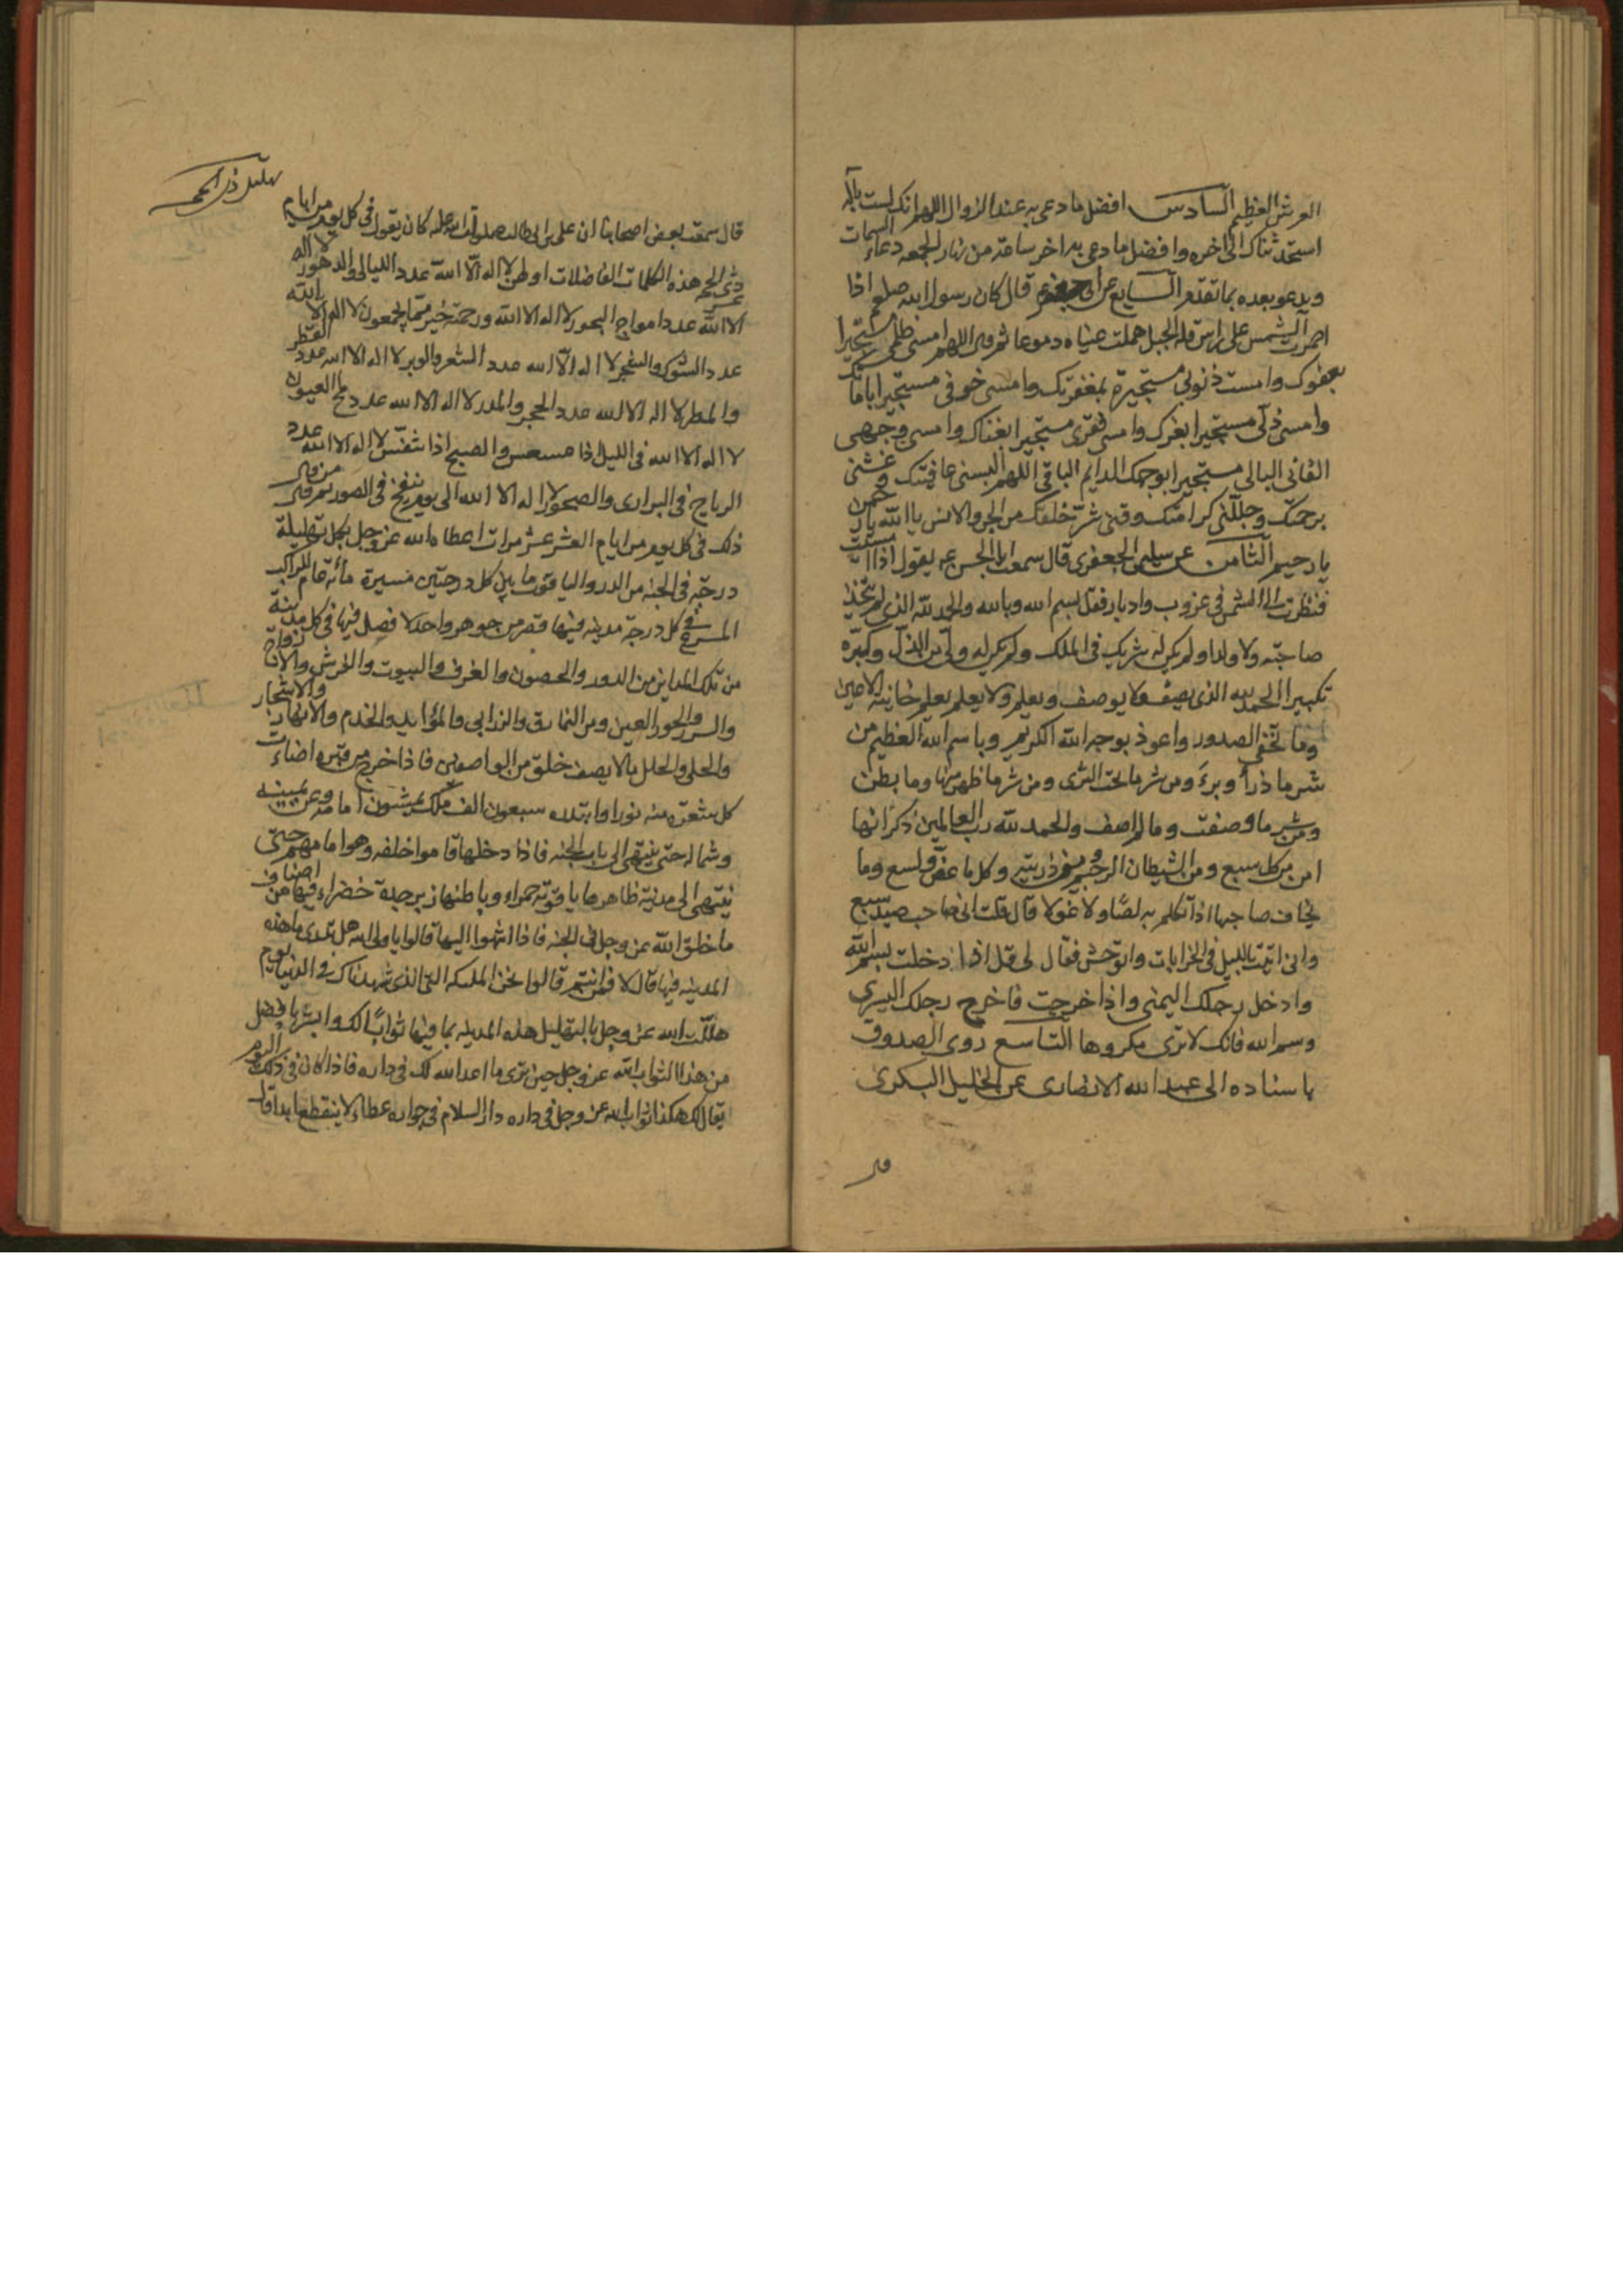 العرش العظيم السادس افضل ما دعى به عند الزوال اللهم انك لست باله
استحدثناك الى اخره وافضل ما دعى به اخر ساعة من نهار الجمعه دعاء السمات
ويدعو بعده بما تقدم السابع عن ابى جعفر ع قال كان رسول الله صلعم اذا
احمرت الشمس على راس قلة الجبل هملت عيناه دموعا ثم قال اللهم امسى ظلمى مستجيرا
بعفوك وامست ذنوبى مستجيرة بمغفرتك وامسى خوفى مستجيرا بامانك
وامسى ذلى مستجيرا بعزك وامسى فقرى مستجيرا بغناك وامسى وجهى
الفانى البالى مستجيرا بوجهك الدايم الباقى اللهم البسنى عافيتك وغشنى
برحمتك وجللنى كرامتك وقنى شر خلقك من الجن والانس يا الله يا رحمن
يا رحيم الثامن عن سليمى الجعفرى قال سمعت ابا الحسن ع يقول اذا امسيت
فنظرت الى الشمس فى غروب وادبار فقل بسم الله وبالله والحمد لله الذى لم يتخذ
صاحبة ولا ولدا ولم يكن له شريك فى الملك ولم يكن له ولى من الذل وكبره
تكبيرا الحمد لله الذى يصف ولا يوصف ويعلم ولا يعلم يعلم خاينة الاعين
وما تخفى الصدور واعوذ بوجه الله الكريم وباسم الله العظيم من
شر ما ذرأ وبرء ومن شر ما تحت الثرى ومن شر ما ظهر منها وما بطن
ومن شر ما وصفت وما لم اصف والحمد لله رب العالمين ذكر انها
امن من كل سبع ومن الشيطان الرجيم ومن ذريته وكل ما عض ولسع وما
يخاف صاحبها اذا تكلم به لصا ولا غولا قال قلت انى صاحب صيد سبع
وانى ابيت بالليل فى الخرابات واتوحش فقال لى قل اذا دخلت بسم الله
وادخل رجلك اليمنى واذا خرجت فاخرج رجلك اليسرى
وسم الله فانك لا ترى مكروها التاسع روى الصدوق
باسناده الى عبد الله الانصارى عن الخليل البكرى
قال
تهليل ذى الحجه
قال سمعت بعض اصحابنا ان على بن ابى طالب صلوات الله عليه كان يقول فى كل يوم من ايام
عشر ذى الحجه هذه الكلمات الفاضلات اولهن لا اله الا الله عدد الليالى والدهور لا اله
الا الله عدد امواج البحور لا اله الا الله ورحمته خير مما يجمعون لا اله الا الله
عدد الشوك والشجر لا اله الا الله عدد الشعر والوبر لا اله الا الله عدد القطر
والمطر لا اله الا الله عدد الحجر والمدر لا اله الا الله عدد لمح العيون
لا اله الا الله فى الليل اذا عسعس والصبح اذا تنفس لا اله الا الله عدد
الرياح فى البرارى والصحور لا اله الا الله الى يوم ينفخ فى الصور ثم قال من قال
ذلك فى كل يوم من ايام العشر عشر مرات اعطاه الله عز وجل بكل تهليلة
درجة فى الجنه من الدر والياقوت ما بين كل درجتين مسيرة مأئة عام للراكب
المسرع فى كل درجة مدينه فيها قصر من جوهر واحد لا فصل فيها فى كل مدينة
من تلك المداين من الدور والحصون والغرف والبيوت والفرش والازواج
والسرر والحور العين ومن النمارق والزرابى والموايد والخدم والانهار والاشجار
والحلى والحلل ما لا يصف خلق من الواصفين فاذا خرج من قبره اضاءت
كل شعرة منه نورا وابتدره سبعون الف ملك يمشون امامه وعن يمينه
وشماله حتى ينتهى الى باب الجنه فاذا دخلها قاموا خلفه وهو امامهم حتى
ينتهى الى مدينة ظاهرها ياقوته حمراء وباطنها زبرجدة خضراء فيها من اصناف
ما خلق الله عز وجل فى الجنه فاذا انتهوا اليها قالوا يا ولى الله هل تدرى ما هذه
المدينه فيها قال لا فمن انتم قالوا نحن الملئكه التى الذى شهدناك فى الدنيا يوم
هللت الله عز وجل بالتهليل هذه المدينه بما فيها ثوابا لك وابشر بافضل
من هذا الثواب الله عز وجل حين ترى ما اعد الله لك فى داره فاذا كان فى ذلك اليوم
يقال لك هكذا ثواب الله عز وجل فى داره دار السلام فى جواره عطاء لا ينقطع ابدا قال